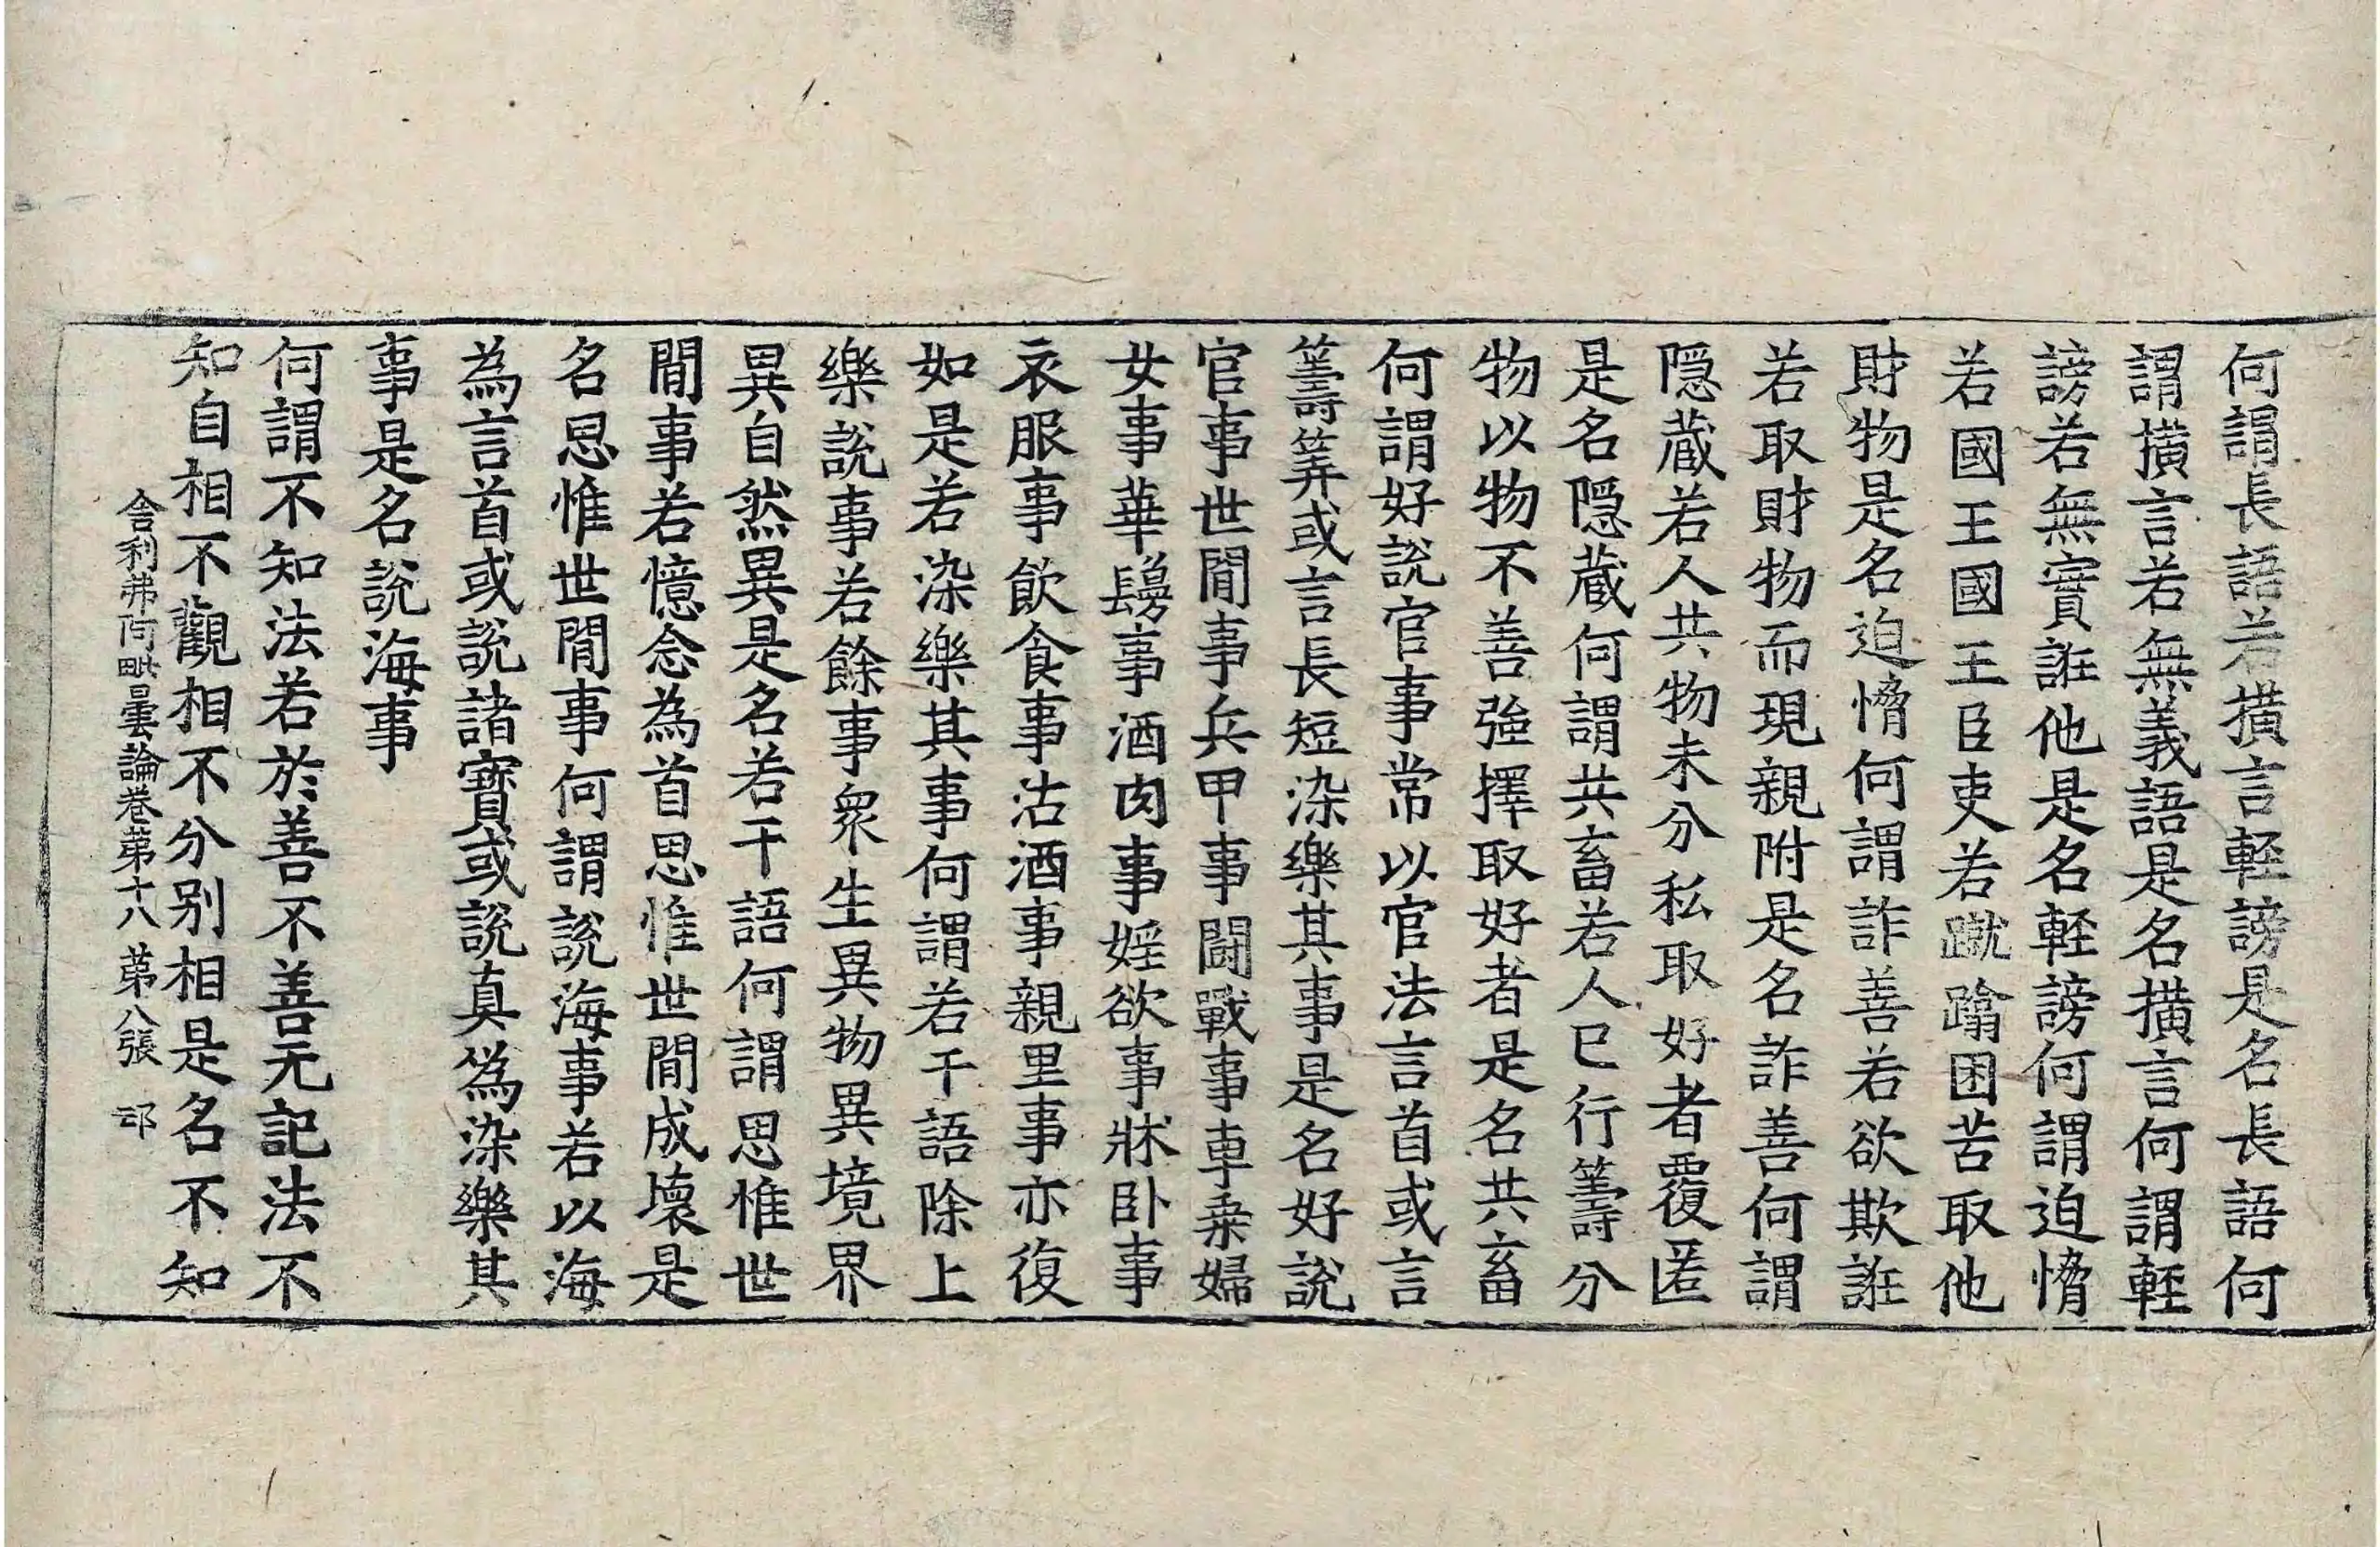 何謂長語若撗言輕謗是名長語何
謂撗言若無義語是名撗言何謂輕
謗若無實誑他是名輕謗何謂迫愶
若國王國王臣吏若蹴蹹困苦取他
財物是名迫愶何謂詐善若欲欺誑
若取財物而現親附是名詐善何謂
隠蔵若人共物未分私取好者覆匿
是名隠蔵何謂共畜若人已行籌分
物以物不善強擇取好者是名共畜
何謂好說官事常以官法言首或言
籌筭或言長短染樂其事是名好說
官事世間事兵甲事闘戰事車乗婦
女事華鬘事酒肉事婬欲事牀卧事
衣服事飲食事沽酒事親里事亦復
如是若染樂其事何謂若干語除上
樂說事若餘事衆生異物異境界
異自然異是名若干語何謂思惟世
間事若憶念為首思惟世間成壞是
名思惟世間事何謂說海事若以海
為言首或說諸寶或說真偽染樂其
事是名說海事
何謂不知法若於善不善无記法不
知自相不觀相不分別相是名不知
舍利弗阿毗曇論卷第十八 第八張 卭